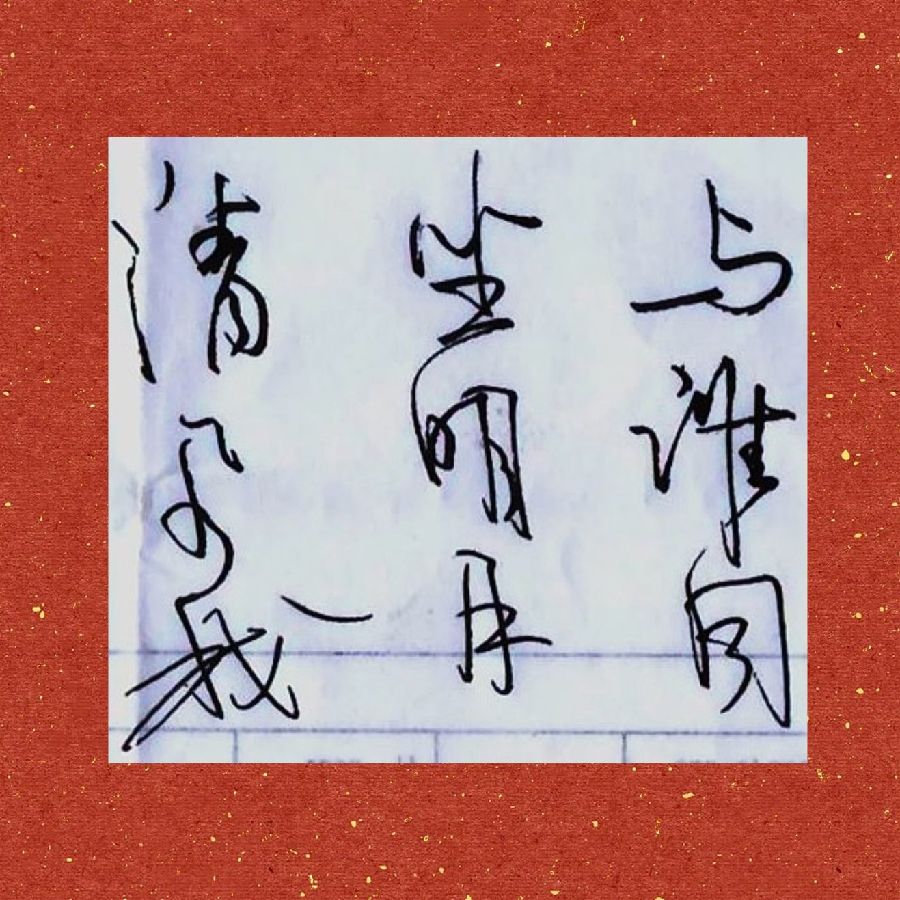 与谁同
坐明月
清风我